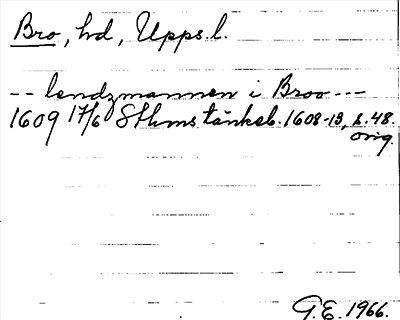 Bro, hd, Upps.l.
-- lendzmannen i Broo ---
1609 17/6 Sthms tänkeb. 1608-13, s. 48.
orig.
G.E. 1966.